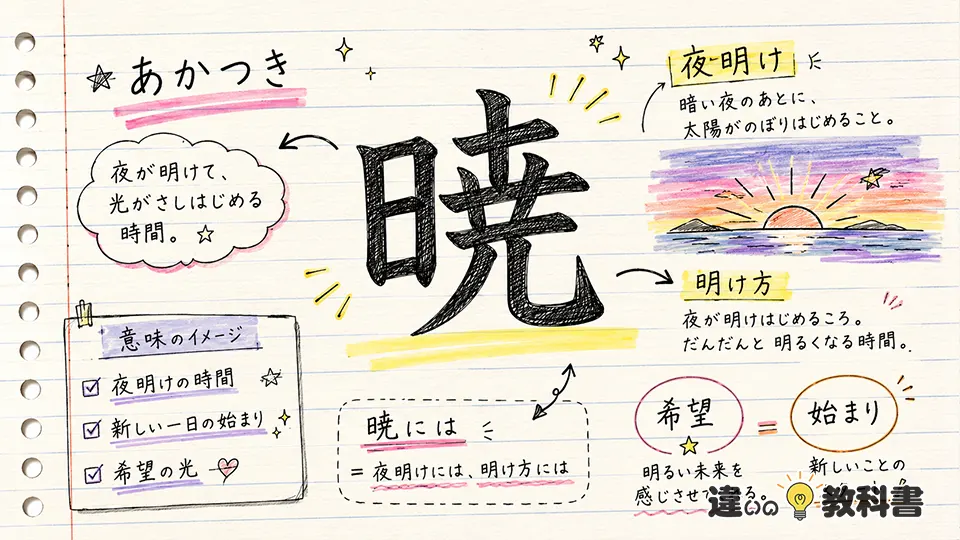 あかつき
夜が明けて、
光がさしはじめる
時間。
暁
夜明け
暗い夜のあとに、
太陽がのぼりはじめること。
明け方
夜が明けはじめるころ。
だんだんと 明るくなる時間。
意味のイメージ
夜明けの時間
新しい一日の始まり
希望の光
暁には
= 夜明けには、明け方には
希望 = 始まり
明るい未来を
感じさせ
る。
新しいことの
違いの教科書